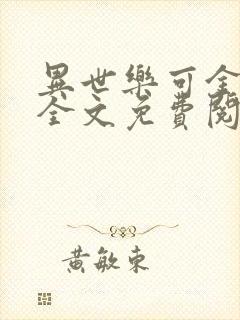 異世樂可全
全文免費閱
黃敏東